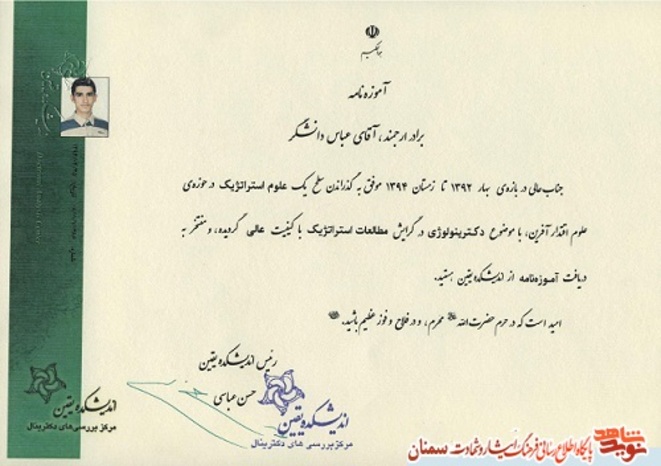 بسم الله الرحمن الرحیم
آموزه نامه
برادر ارجمند، آقای عباس دانشگر
جنابعالی در بازه‌ی بهار ۱۳۹۲ تا زمستان ۱۳۹۴ موفق به گذراندن سطح یک علوم استراتژیک در حوزه‌ی
علوم اقتدار آفرین، با موضوع دکترینولوژی در گرایش مطالعات استراتژیک با کیفیت عالی گردیده، و مفتخر به
دریافت آموزه‌نامه از اندیشکده یقین هستید.
امید است که در حرم حضرت الله محرم، و در فلاح و فوز عظیم باشید.
رئیس اندیشکده یقین
حسن عباسی
اندیشکده یقین
مرکز بررسی‌های دکترینال
اندیشکده یقین
مرکز بررسی های دکترینال
نوید شاهد
پایگاه اطلاع رسانی فرهنگ ایثار و شهادت سمنان